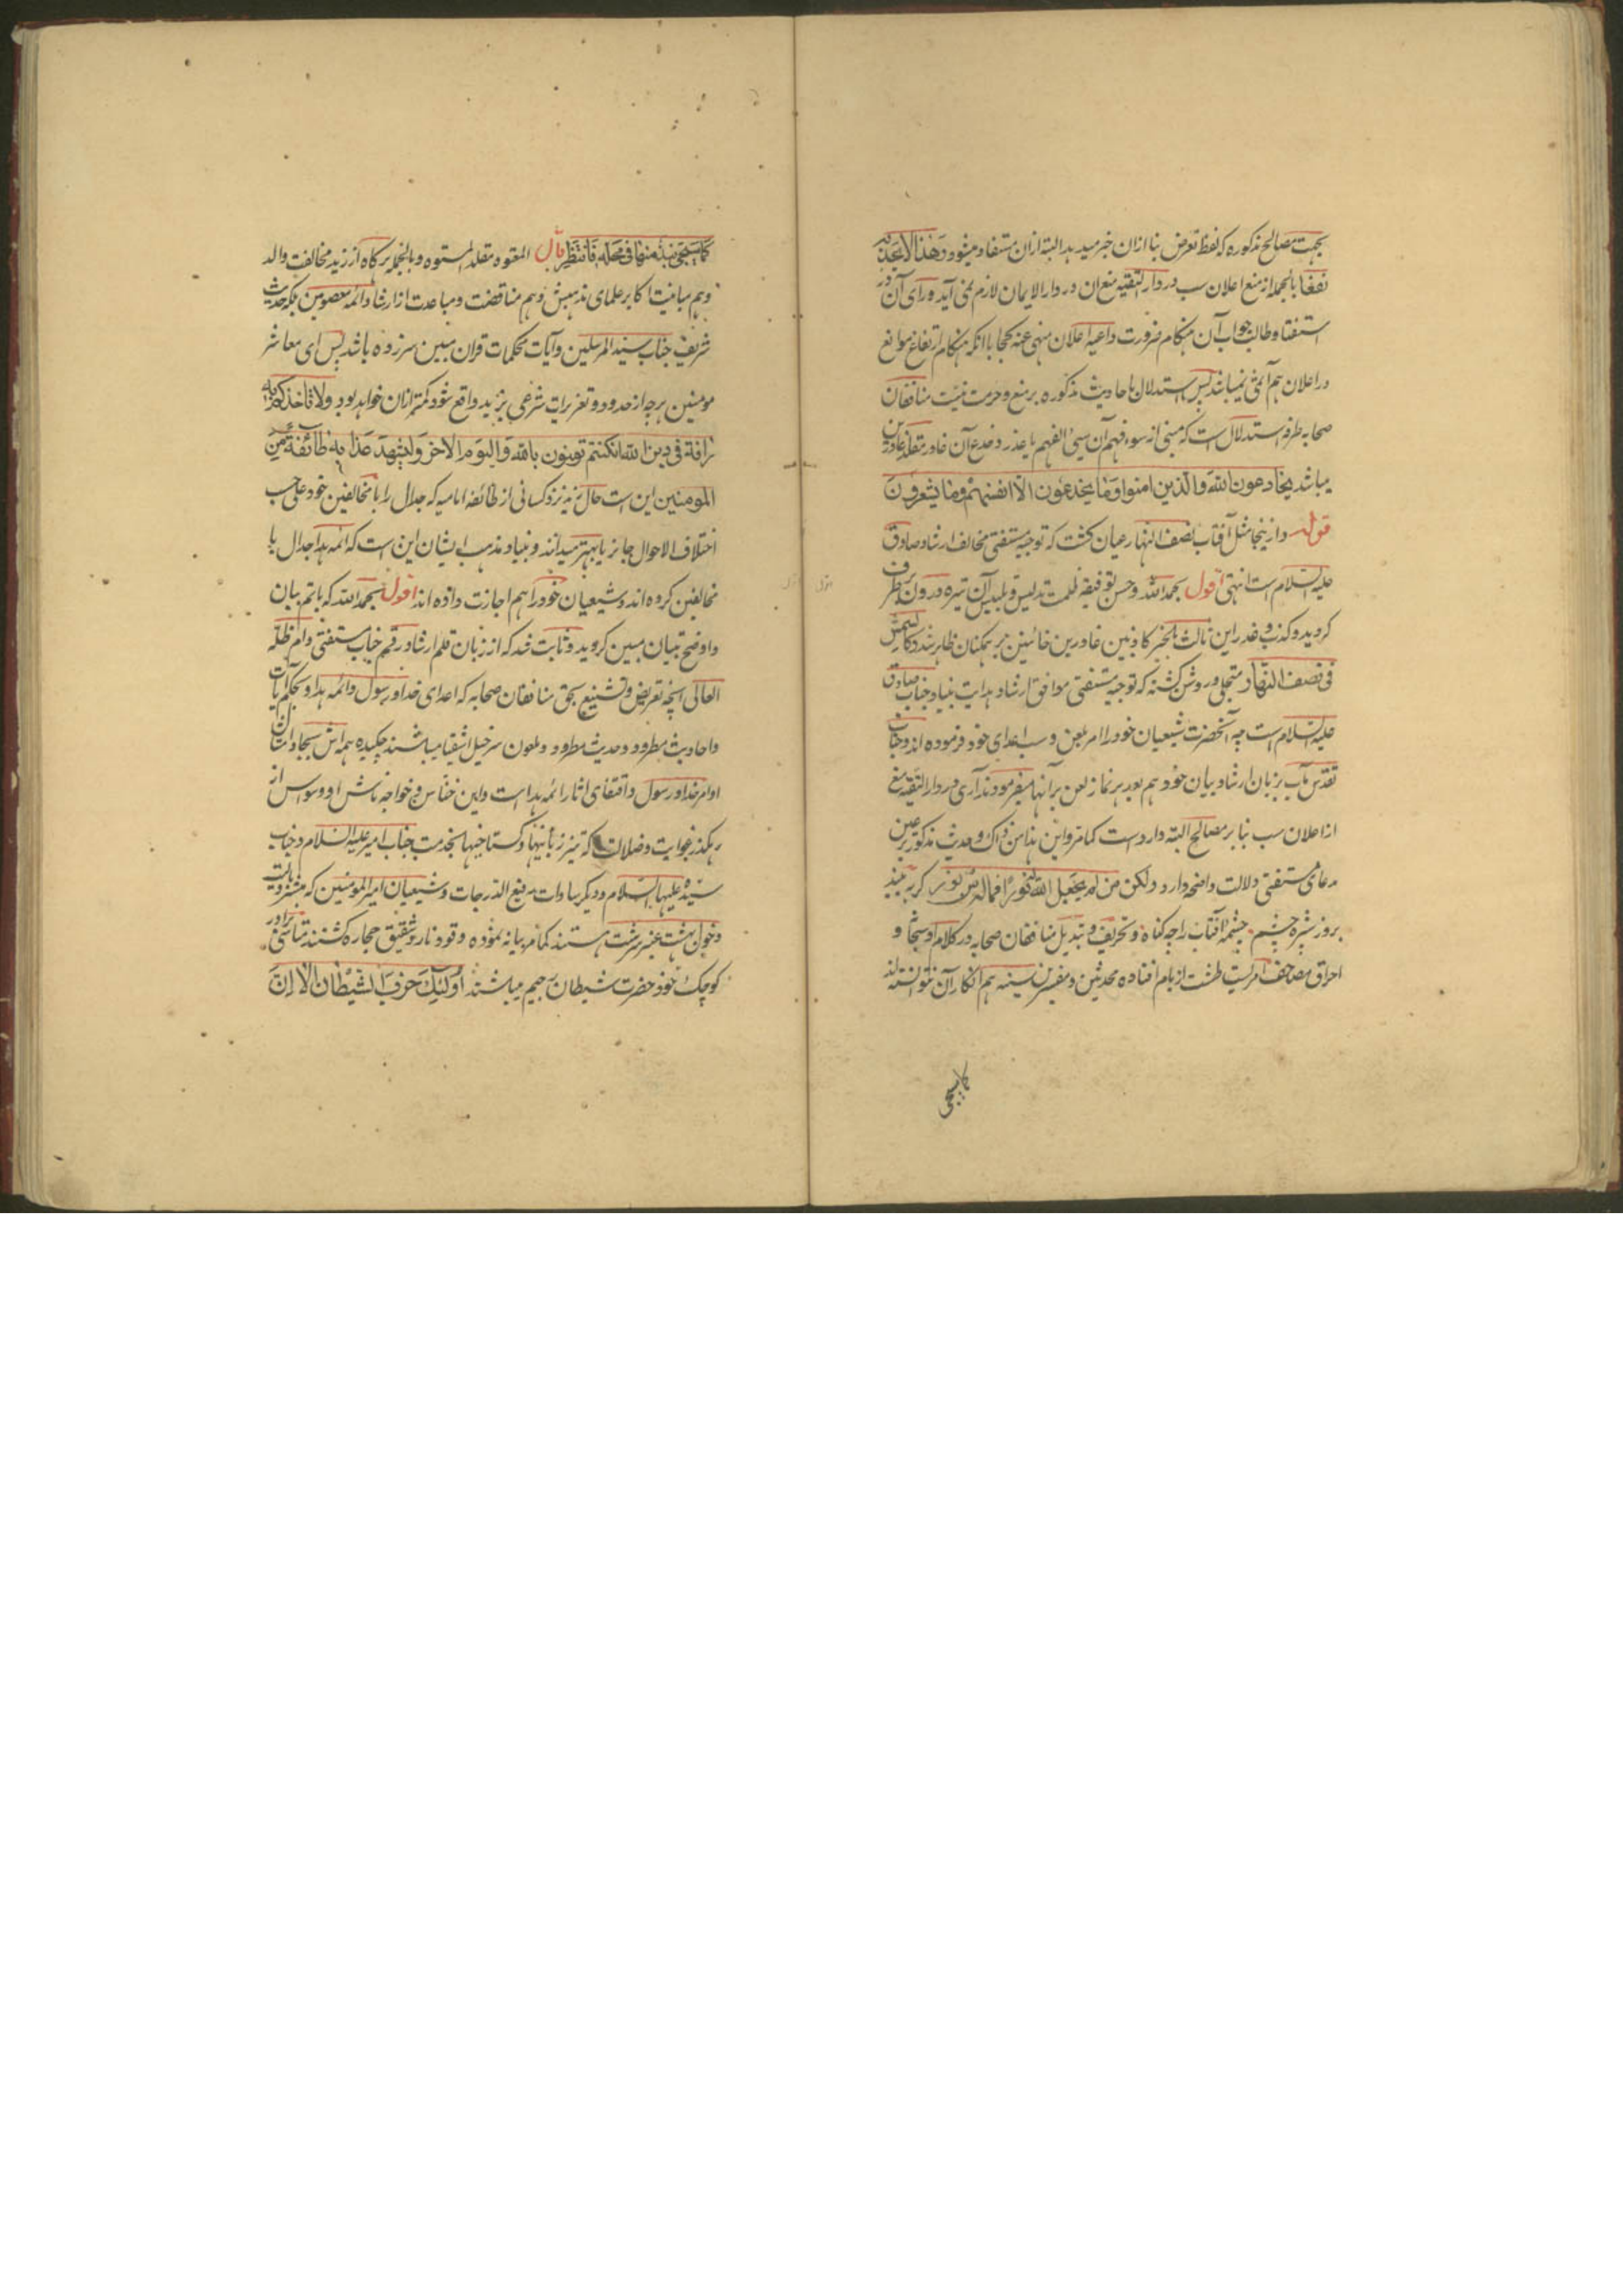 بجهت مصالح مذکوره که لفظ تعرض بنا ازان خبر میدهد البته ازان مستفاد میشود و هذا لا یجدیه
نفعا بالجمله از منع اعلان سب در دار التقیه منع ان در دار الایمان لازم نمی آید ورای آن در
استفتا و طالب جواب آن هنکام ضرورت داعیه اعلان منهی عنه کجا با انکه هنکام ارتفاع موانع
در اعلان هم آن نمیباشد پس استدلال باحادیث مذکوره بر منع و حرمت منافقان
صحابه طرفه استدلال است که مبنی از سوء فهم آن سیئ الفهم یا غدر و خدع آن غادر مقلد غادرین
میباشد یخادعون الله والذین امنوا وما یخدعون الا انفسهم وما یشعرون
قوله و ازینجا مثل آفتاب نصف النهار عیان کشت که توجیه مستفتی مخالف ارشاد صادق
علیه السلام است انتهی اقول بحمد الله و حسن توفیقه ظلمت تدلیس و تلبیس آن تیره درون برطرف
کردید و کذب و غدر این ثالث کاذبین غادرین خائنین بر همکنان ظاهر شد و کالشمس
فی نصف النهار متجلی و روشن کشته که توجیه مستفتی موافق ارشاد هدایت بنیاد جناب صادق
علیه السلام است چه آنحضرت شیعیان خود را امر بلعن و سب اعدای خود فرموده اند و جناب
تقدس مآب بزبان ارشاد بیان خود هم بعد هر نماز لعن بر آنها میفرمودند آری در دار التقیه منع
از اعلان سب بنا بر مصالح البته وارد است کما مر و این هذا من ذاک و حدیث مذکور بر عین
مدعای مستفتی دلالت واضحه دارد ولکن من لم یجعل الله له نورا فما له من نور کر نه بیند
بروز شپره چشم چشمه آفتاب را چه کناه و تحریف و تبدیل منافقان صحابه در کلام او سبحانه و
احراق مصاحف امریست طشت از بام افتاده محدثین و مفسرین سنیه هم انکار آن نتوانستند
کما سیجی
کما سیجئ نبذ منها فی محله فانتظر قال المعتوه مقلد المستوه و بالجمله هرکاه از زید مخالفت والد
و هم مباینت اکابر علمای مذهبش و هم مناقضت و مباعدت از ارشاد ائمه معصومین بلکه حدیث
شریف جناب سید المرسلین و آیات محکمات قران مبین سر زده باشد پس ای معاشر
مومنین هر چه از حدود و تعزیرات شرعی بر زید واقع شود کمتر ازان خواهد بود ولا تاخذکم به
رافة فی دین الله ان کنتم تومنون بالله والیوم الاخر ولیشهد عذابه طائفة من
المومنین این است حال زید نزد کسانی از طائفه امامیه که جدال را با مخالفین خود علی حسب
اختلاف الاحوال جائز یا بهتر میدانند و بنیاد مذهب ایشان این است که ائمه هدا جدال با
مخالفین کرده اند و شیعیان خود را هم اجازت داده اند اقول بحمد الله که باتم بیان
و اوضح تبیان مبین کردید و ثابت شد که از زبان قلم ارشاد رقم جناب مستفتی دام ظله
العالی انچه تعریض و تشنیع بحق منافقان صحابه که اعدای خدا و رسول و ائمه هدا و بحکم آیات
و احادیث مطرود و حدیث مطرود و ملعون سرخیل اشقیا میباشند چکیده همه اش بجا و از
اوامر خدا و رسول و اقتفای اثار ائمه هدا است و این خناس و خواجه تاش او وسواس از
رهکذر غوایت و ضلالت که تیز زبانیها و کستاخیها بخدمت جناب امیر علیه السلام و جناب
سیده علیها السلام و دیکر سادات رفیع الدرجات و شیعیان امیر المومنین که مبشر و بشارت
دخول بهشت عنبر سرشت هستند کما مر بیانه نموده وقود نار و شقیق حجاره کشتند برادر
کوچک خود حضرت شیطان رجیم میباشند اولئک حزب الشیطان الا ان